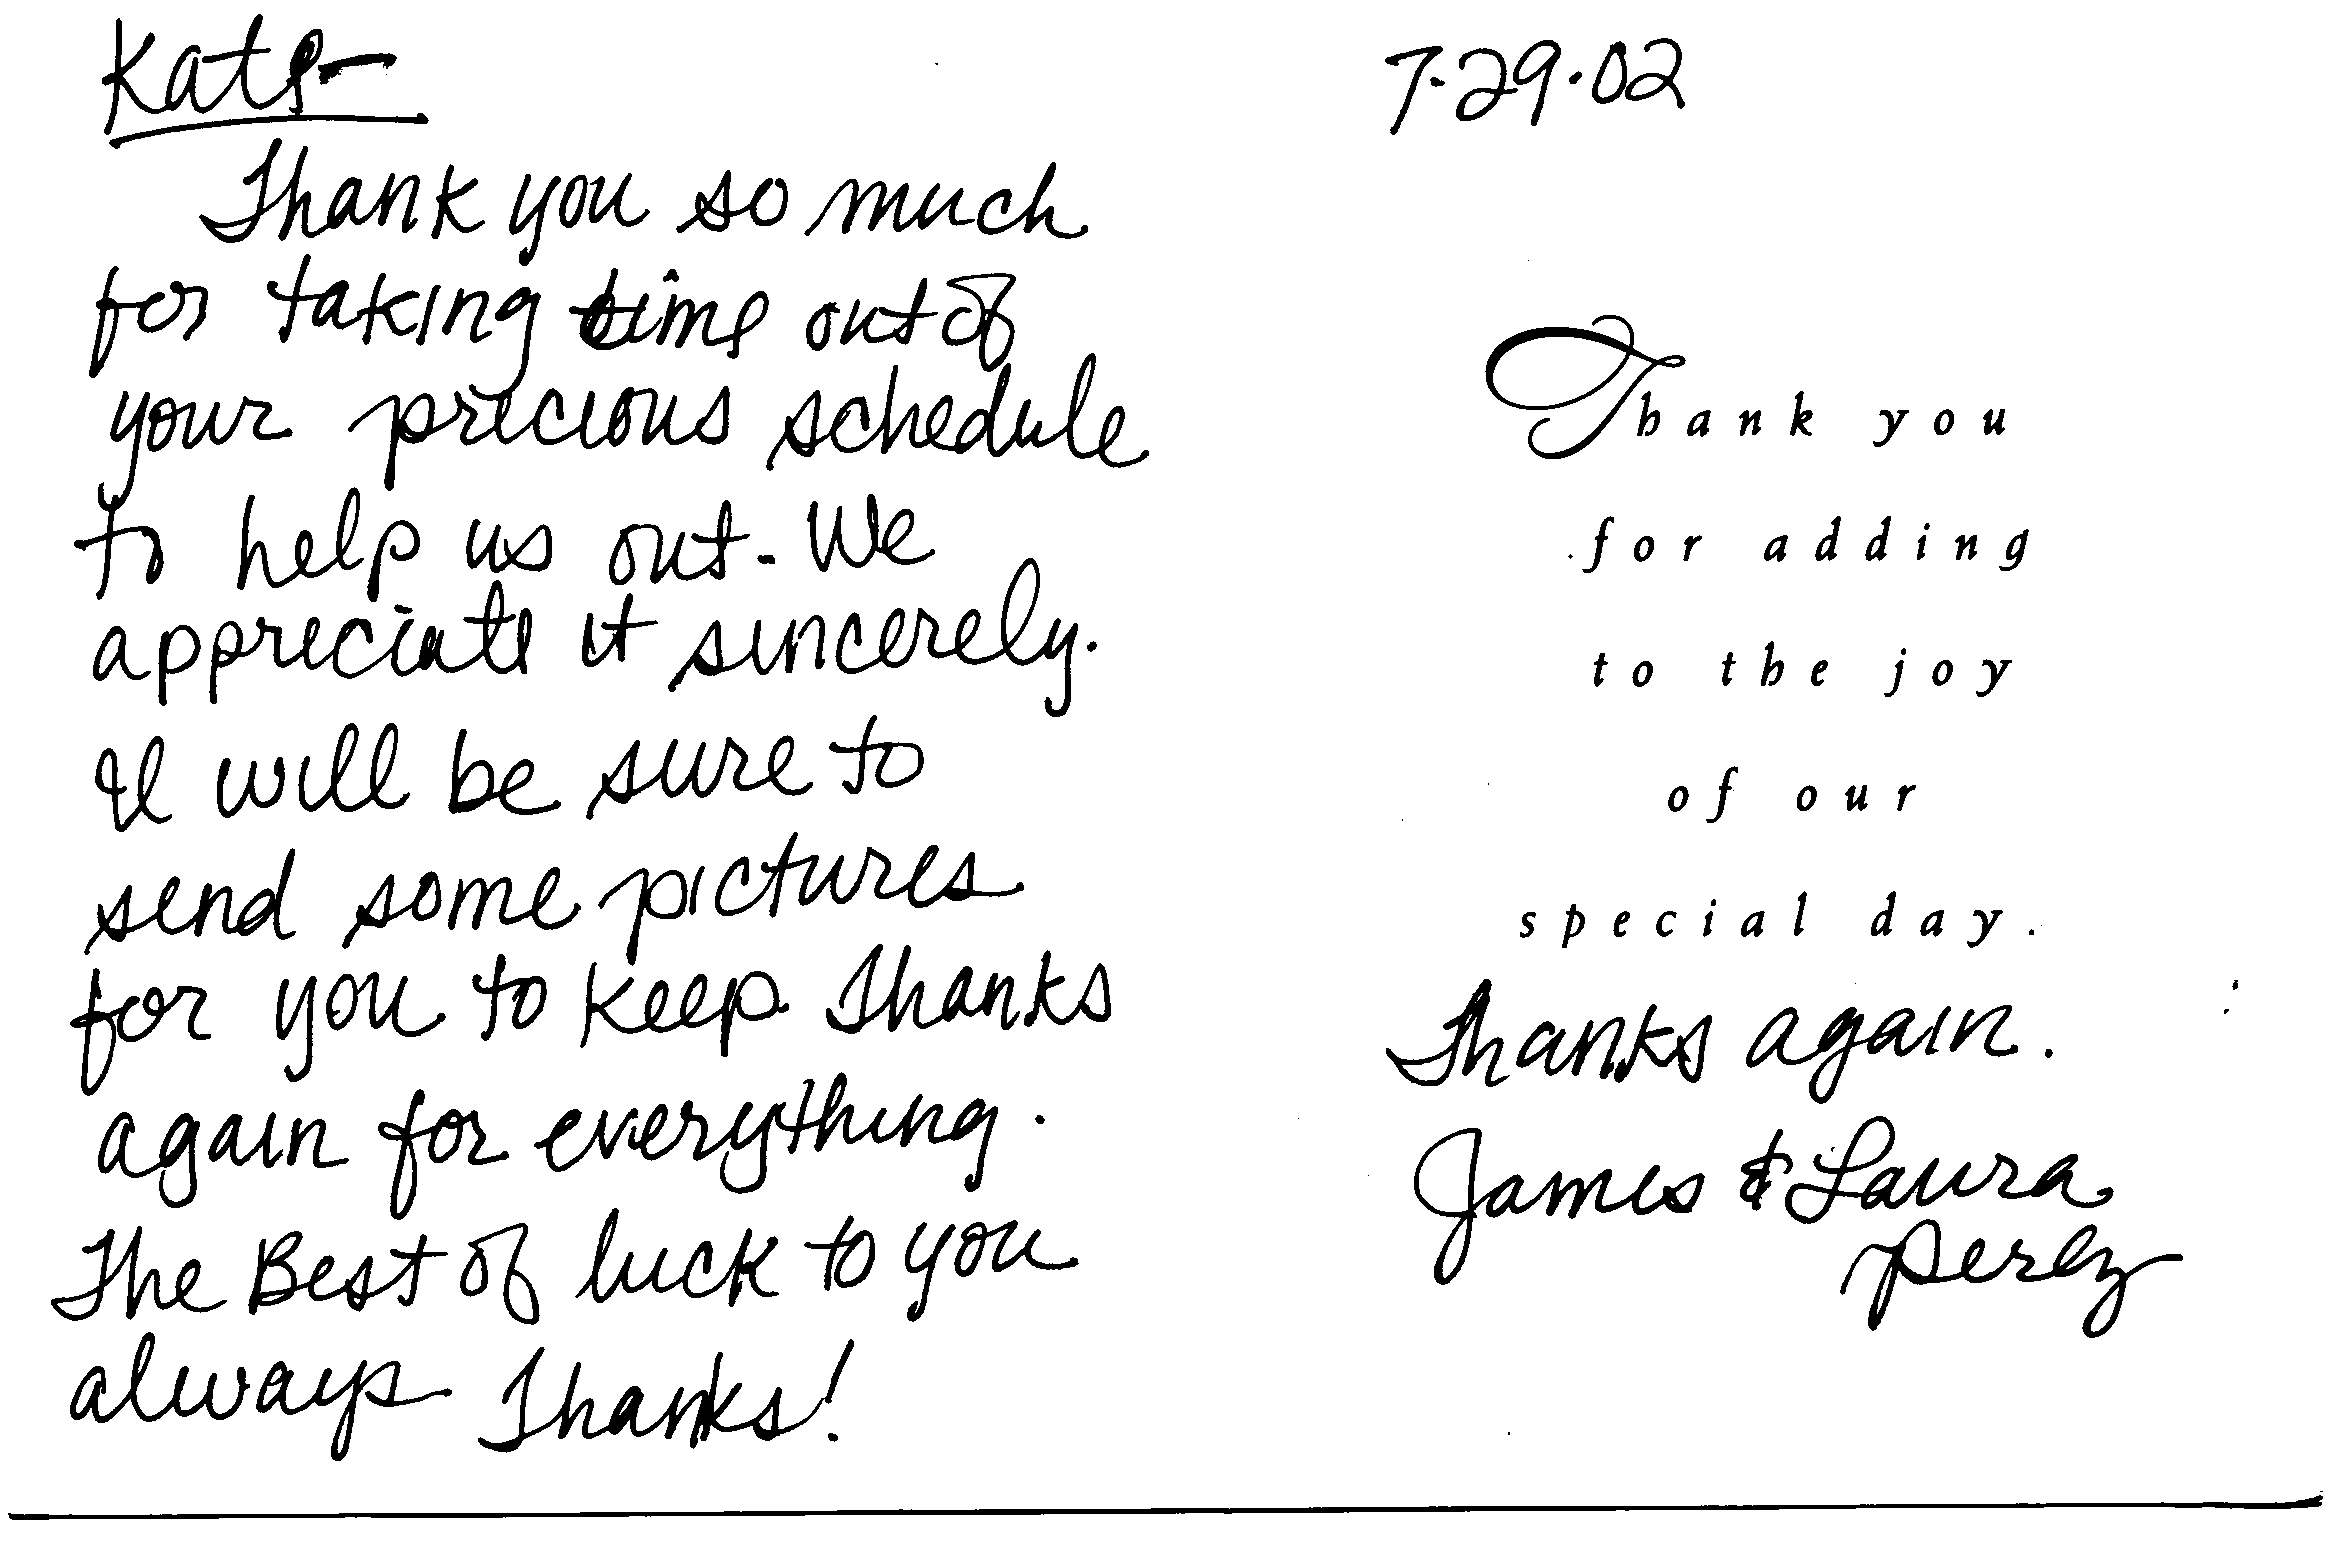 Kate-
Thank you so much
for taking time out of
your precious schedule
to help us out. We
appreciate it sincerely.
I will be sure to
send some pictures
for you to keep. Thanks
again for everything.
The Best of luck to you
always Thanks!
7-29-02
Thank you
for adding
to the joy
of our
special day.
Thanks again.
James & Laura
Perez